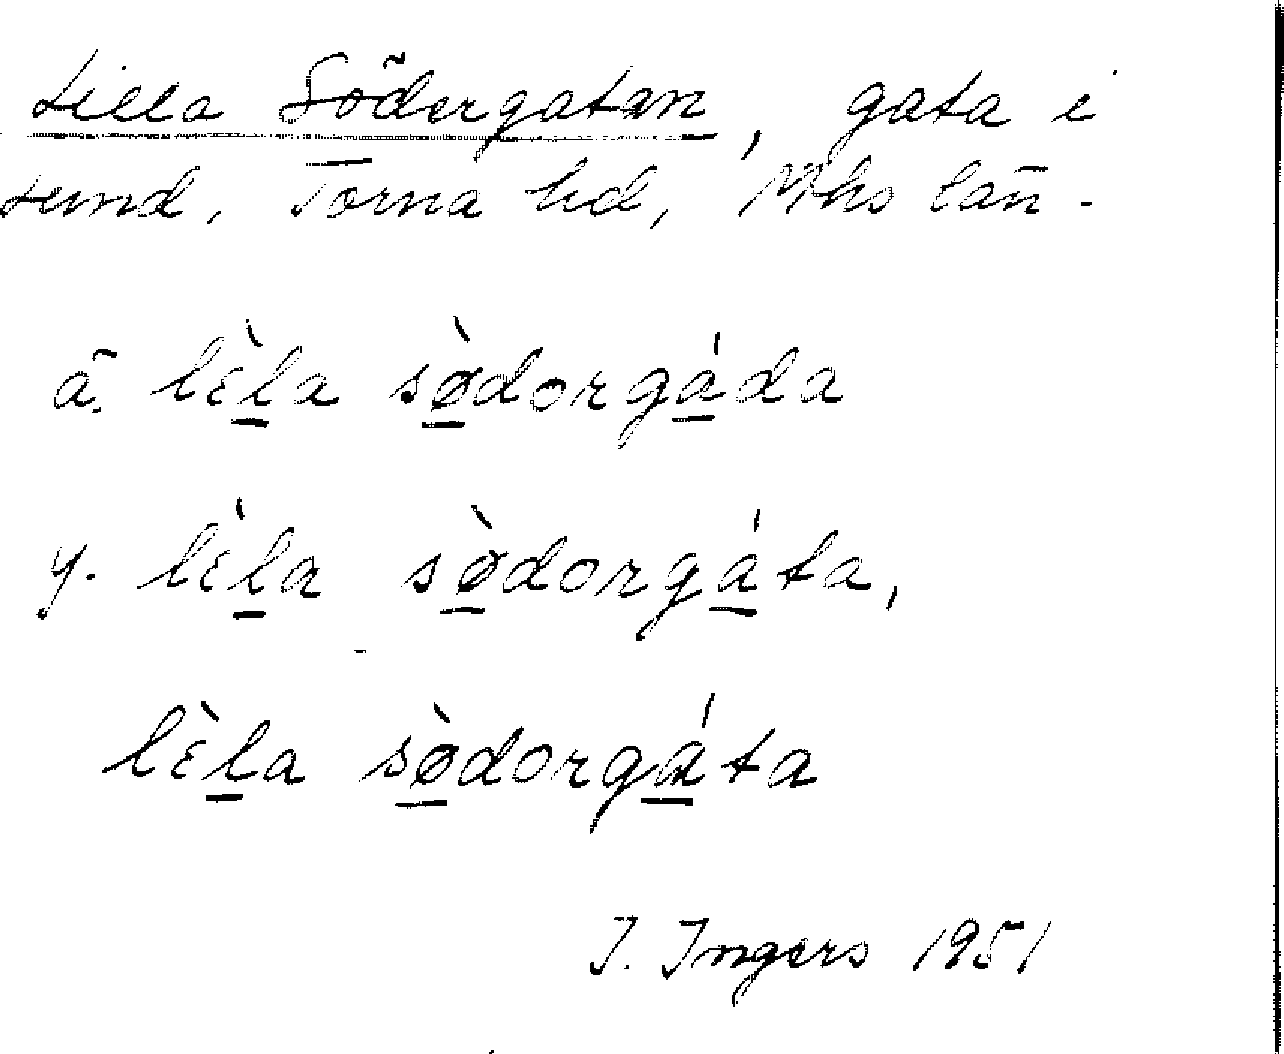 Lilla Södergatan, gata i
Lund, Torna hd, Mhs län.
ä. lὲla sø̀dorgáda
y. lὲla sø̀dorgáta,
lὲla sø̀dorgáta
I. Ingers 1951